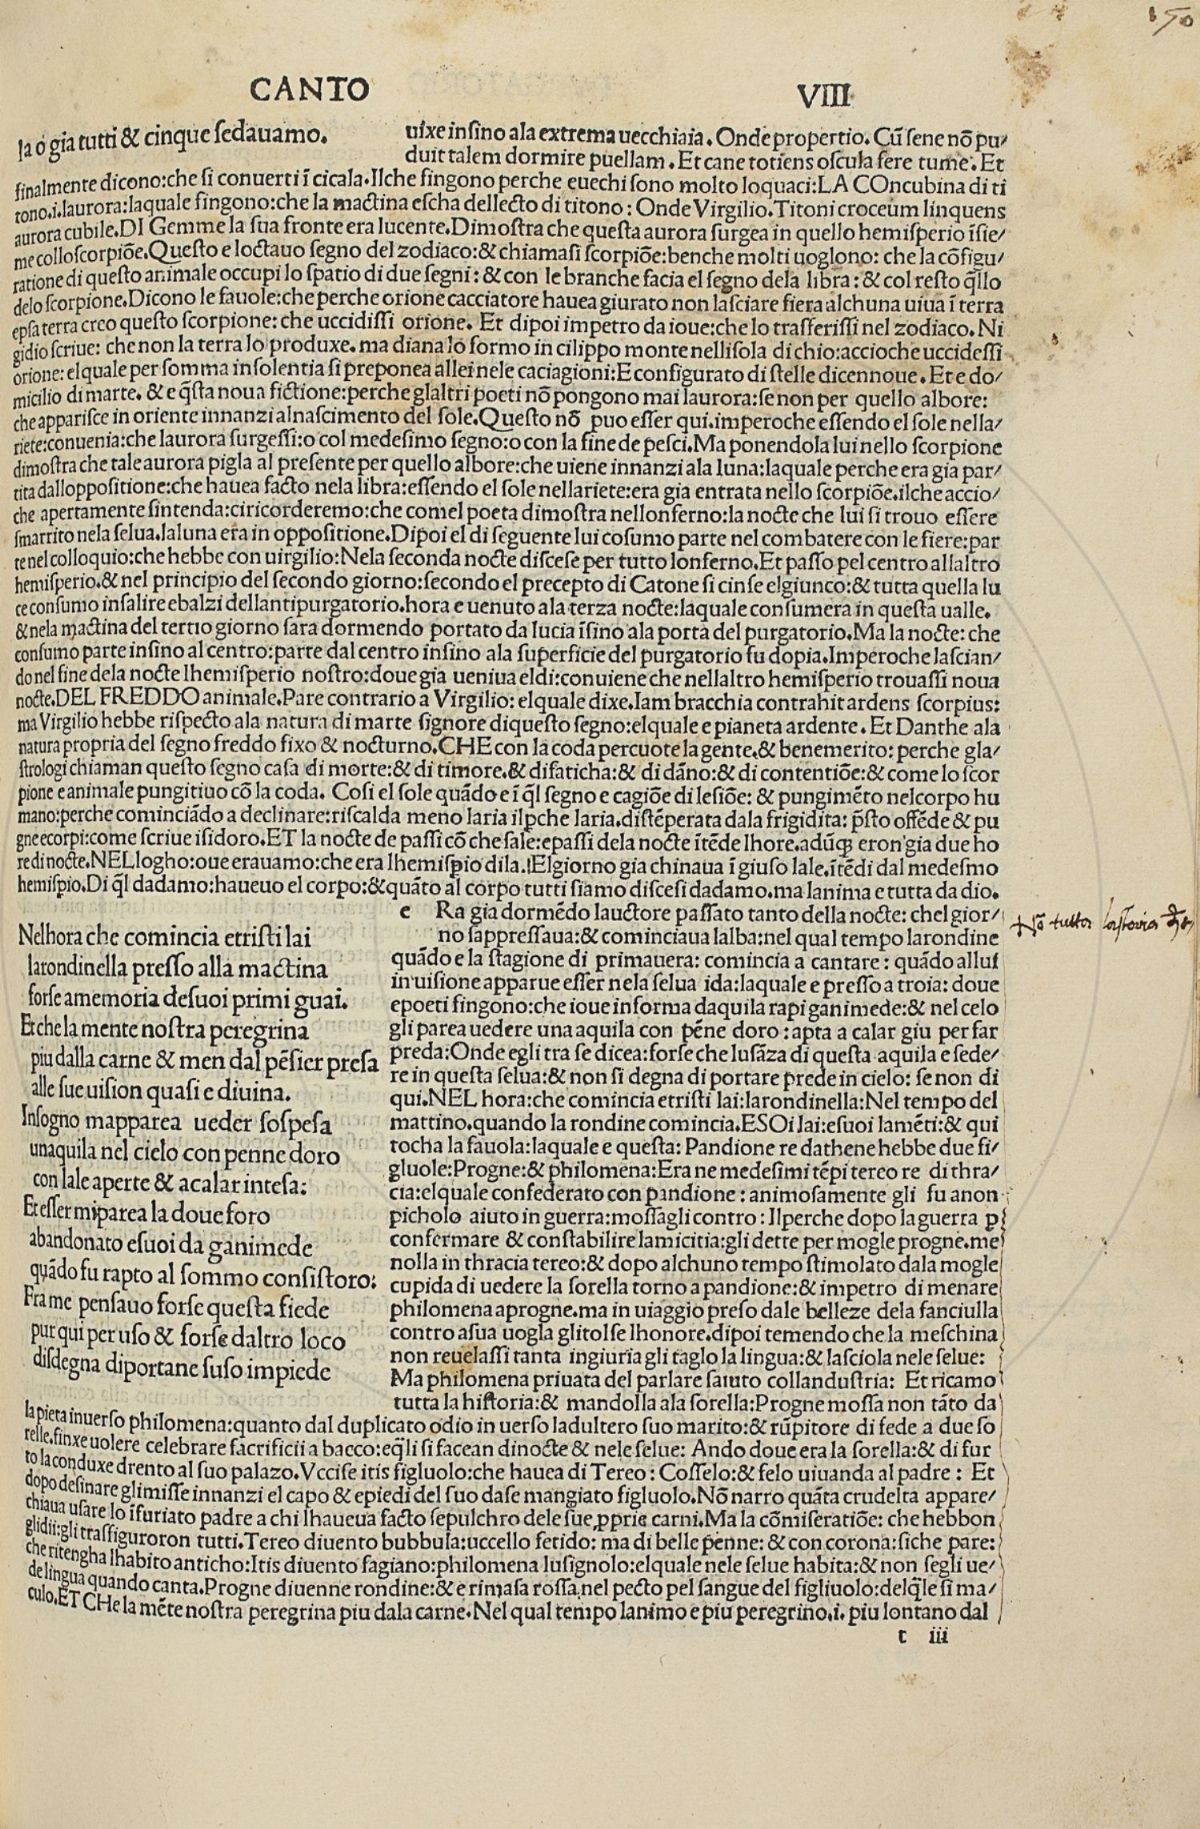 150
CANTO
VIII
la o gia tutti & cinque sedauamo.
uixe insino ala extrema uecchiaia. Onde propertio. Cū sene nō pu/
duit talem dormire puellam. Et cane totiens oscula fere tume. Et
finalmente dicono:che si conuerti ī cicala. Ilche fingono perche euechi sono molto loquaci:LA COncubina di ti
tono.i.laurora:laquale fingono:che la mactina escha dellecto di titono: Onde Virgilio. Titoni croceum linquens
aurora cubile. DI Gemme la sua fronte era lucente. Dimostra che questa aurora surgea in quello hemisperio īsie/
me collo scorpiōe. Questo e loctauo segno del zodiaco:& chiamasi scorpiōe:benche molti uoglono: che la cōfigu/
ratione di questo animale occupi lo spatio di due segni: & con le branche facia el segno dela libra: & col resto q̄llo
delo scorpione. Dicono le fauole:che perche orione cacciatore hauea giurato non lasciare fiera alchuna uiua ī terra
epsa terra creo questo scorpione: che uccidissi orione. Et dipoi impetro da ioue:che lo trasferissi nel zodiaco. Ni
gidio scriue: che non la terra lo produxe. ma diana lo formo in cilippo monte nellisola di chio:accioche uccidessi
orione: elquale per somma insolentia si preponea allei nele caciagioni: E configurato di stelle dicennoue. Et e do/
micilio di marte. & e q̄sta noua fictione:perche glaltri poeti nō pongono mai laurora:se non per quello albore:
che apparisce in oriente innanzi alnascimento del sole. Questo nō puo esser qui. imperoche essendo el sole nella/
riete:conuenia:che laurora surgessi:o col medesimo segno:o con la fine de pesci. Ma ponendola lui nello scorpione
dimostra che tale aurora pigla al presente per quello albore:che uiene innanzi ala luna:laquale perche era gia par/
tita dalloppositione:che hauea facto nela libra:essendo el sole nellariete:era gia entrata nello scorpiōe.ilche accio/
che apertamente sintenda:ciricorderemo:che comel poeta dimostra nellonferno:la nocte che lui si trouo essere
smarrito nela selua.laluna era in oppositione. Dipoi el di seguente lui cōsumo parte nel combatere con le fiere:par
te nel colloquio:che hebbe con uirgilio: Nela seconda nocte discese per tutto lonferno. Et passo pel centro allaltro
hemisperio.& nel principio del secondo giorno:secondo el precepto di Catone si cinse elgiunco:& tutta quella lu
ce consumo in salire ebalzi dellantipurgatorio.hora e uenuto ala terza nocte:laquale consumera in questa ualle.
& nela mactina del tertio giorno sara dormendo portato da lucia īsino ala porta del purgatorio. Ma la nocte: che
consumo parte insino al centro:parte dal centro insino ala superficie del purgatorio fu dopia. Imperoche lascian/
do nel fine dela nocte lhemisperio nostro:doue gia ueniua eldi:conuiene che nellaltro hemisperio trouassi noua
nocte. DEL FREDDO animale. Pare contrario a Virgilio: elquale dixe. Iam bracchia contrahit ardens scorpius:
ma Virgilio hebbe rispecto ala natura di marte signore diquesto segno:elquale e pianeta ardente. Et Danthe ala
natura propria del segno freddo fixo & nocturno. CHE con la coda percuote la gente.& benemerito: perche gla/
strologi chiaman questo segno casa di morte:& di timore.& difaticha:& di dāno:& di contentiōe:& come lo scor
pione e animale pungitiuo cō la coda. Cosi el sole quādo e ī q̄l segno e cagiōe di lesiōe: & pungimēto nelcorpo hu
mano:perche cominciādo a declinare:riscalda meno laria ilpche laria. distēperata dala frigidita: p̄sto offēde & pu
gne ecorpi:come scriue isidoro. ET la nocte de passi cō che sale:epassi dela nocte ītēde lhore. adūq̄ eron gia due ho
re di nocte. NEL logho:oue erauamo:che era lhemispio dila. ! Elgiorno gia chinaua ī giuso lale.ītēdi dal medesmo
hemispio. Di q̄l dadamo:haueuo el corpo:& quāto al corpo tutti siamo discesi dadamo.ma lanima e tutta da dio.
Nelhora che comincia etristi lai
larondinella presso alla mactina
forse amemoria desuoi primi guai.
Et che la mente nostra peregrina
piu dalla carne & men dal pēsier presa
alle sue uision quasi e diuina.
In sogno mapparea ueder sospesa
unaquila nel cielo con penne doro
con lale aperte & acalar intesa:
Et esser miparea la doue foro
abandonato esuoi da ganimede
quādo fu rapto al sommo consistoro:
Fra me pensauo forse questa fiede
pur qui per uso & forse daltro loco
disdegna diportane suso impiede
e Ra gia dormēdo lauctore passato tanto della nocte: chel gior/
no sappressaua:& cominciaua lalba:nel qual tempo larondine
quādo e la stagione di primauera: comincia a cantare: quādo allui
in uisione apparue esser nela selua ida:laquale e presso a troia: doue
epoeti fingono:che ioue in forma daquila rapi ganimede:& nel celo
gli parea uedere una aquila con pēne doro: apta a calar giu per far
preda:Onde egli tra se dicea:forse che lusāza di questa aquila e fede/
re in questa selua:& non si degna di portare prede in cielo: se non di
qui. NEL hora:che comincia etristi lai:larondinella:Nel tempo del
mattino.quando la rondine comincia. ESOi lai:esuoi lamēti:& qui
tocha la fauola:laquale e questa: Pandione re dathene hebbe due fi/
gluole:Progne:& philomena:Era ne medesimi tēpi tereo re di thra/
cia:elquale confederato con pandione: animosamente gli fu a non
picholo aiuto in guerra:mossagli contro: Ilperche dopo la guerra p
confermare & constabilire lamicitia:gli dette per mogle progne.me
nolla in thracia tereo:& dopo alchuno tempo stimolato dala mogle
cupida di uedere la sorella torno a pandione:& impetro di menare
philomena aprogne.ma in uiaggio preso dale belleze dela fanciulla
contro asua uogla glitolse lhonore.dipoi temendo che la meschina
non reuelassi tanta ingiuria gli taglo la lingua:& lasciola nele selue:
Ma philomena priuata del parlare saiuto collandustria: Et ricamo
tutta la historia:& mandolla ala sorella:Progne mossa non tāto da
la pieta inuerso philomena:quanto dal duplicato odio in uerso ladultero suo marito:& rūpitore di fede a due so
relle.finxe uolere celebrare sacrificii a bacco:eq̄li si facean dinocte & nele selue: Ando doue era la sorella:& di fur
to la conduxe drento al suo palazo. Vccise itis figluolo:che hauea di Tereo: Cosselo:& felo uiuanda al padre: Et
dopo desinare glimisse innanzi el capo & epiedi del suo dase mangiato figluolo. Nō narro quāta crudelta appare/
chiaua usare lo īfuriato padre a chi lhaueua facto sepulchro dele sue pprie carni. Ma la cōmiseratiōe: che hebbon
glidii:gli trasfiguroron tutti. Tereo diuento bubbula:uccello fetido: ma di belle penne: & con corona:siche pare:
che ritengha lhabito anticho:Itis diuento fagiano:philomena lusignolo:elquale nele selue habita:& non segli ue/
de lingua quando canta. Progne diuenne rondine:& e rimasa rossa.nel pecto pel sangue del figliuolo:delq̄le si ma/
culo. ET CHe la mēte nostra peregrina piu dala carne. Nel qual tempo lanimo e piu peregrino.i. piu lontano dal
t iii